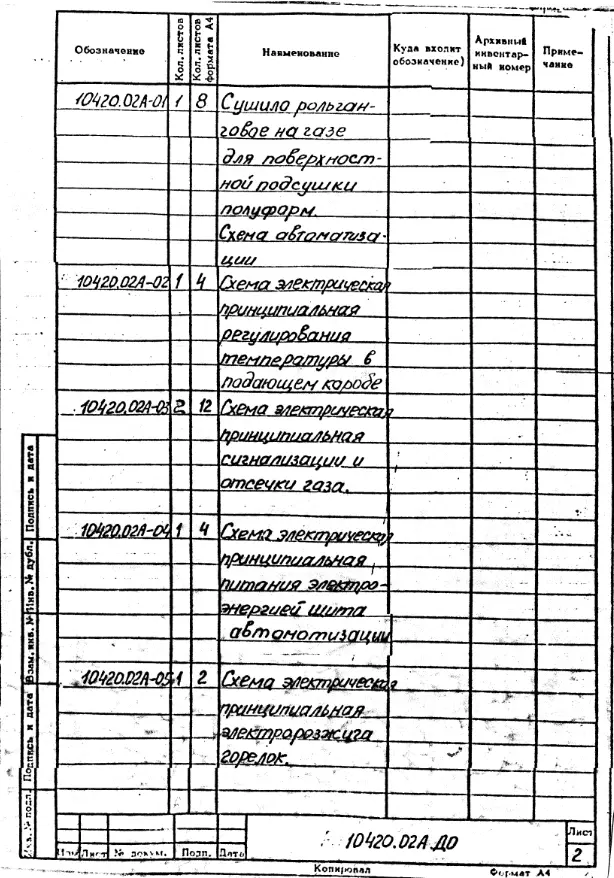 Обозначение Кол. листов Кол. листов формата А4 Наименование Куда входит обозначение) Архивный инвентарный номер Примечание
10420.02А-01 1 8 Сушило рольган-
говое на газе
для поверхност-
ной подсушки
полуфарм.
Схема автоматиза-
ции
10420.02А-02 1 4 Схема электрическая
принципиальная
регулирования
температуры в
подающем коробе
10420.02А-03 2 12 Схема электрическая
принципиальная
сигнализации и
отсечки газа.
10420.02А-04 1 4 Схема электрическая
принципиальная
питания электро-
энергией щита
автоматизации
10420.02А-05 1 2 Схема электрическая
принципиальная
электророзжига
горелок.
Инв. № подл. Подпись и дата Взам. инв. № Инв. № дубл. Подпись и дата
Изм Лист № докум. Подп. Дата
10420.02А ДО
Лист
2
Копировал Формат А4